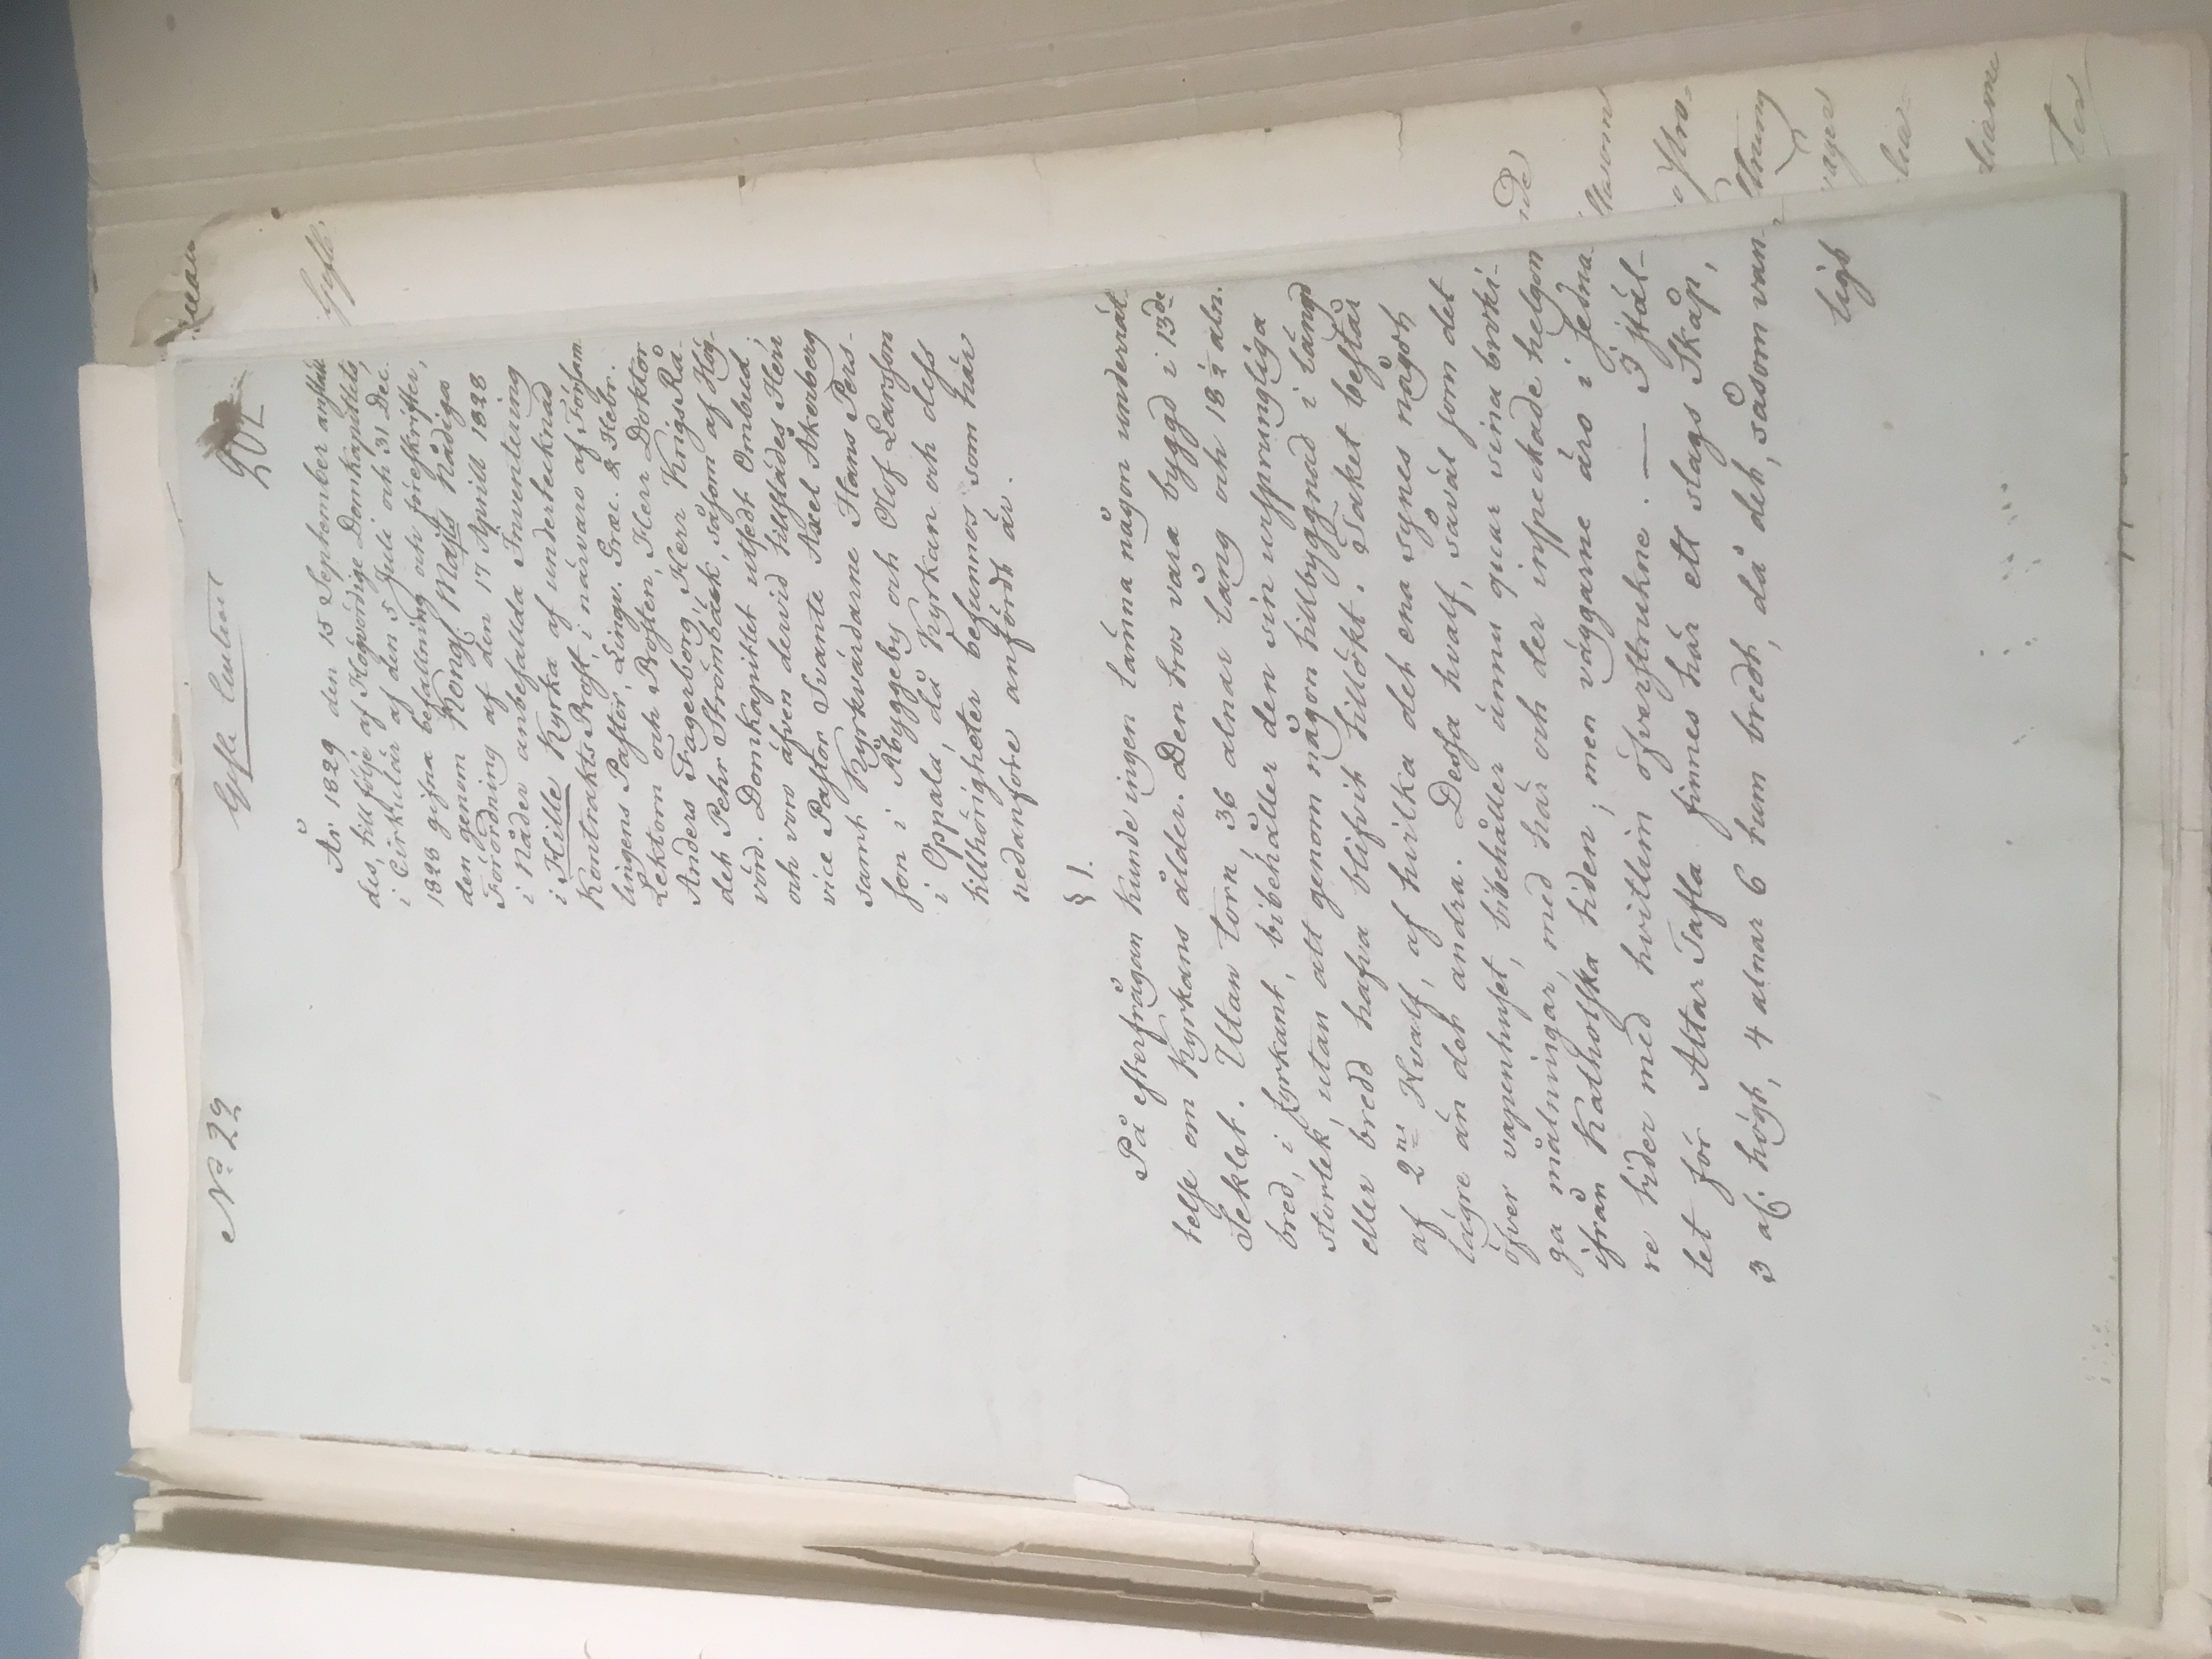 No 29
Gefle Contract
202
År 1829 den 15 September anstäldes, till följe af Högvördige Domkapitlets,
i Cirkulär af den 5 Juli och 31 Dec.
1828 gifna befallning och föreskrifter,
den genom Kongl. Maj:ts Nådiga
Förordning af den 17 Aprill 1828
i Nåder anbefallda Inventering
i Hille Kyrka af undertecknad
Kontrakts Prost, i närvaro af Församlingens Pastor, Lingv. Græc. & Hebr.
Lektorn och Prosten, Herr Doktor
Anders Fagerborg, Herr Krigs Rådet Pehr Strömbäck, såsom af Högvörd. Domkapitlet utsedt Ombud;
och voro äfven dervid tillstädes Herr
vice Pastor Svante Axel Åkerberg
samt Kyrkvärdarne Hans Persson i Åbyggeby och Olof Larsson
i Oppala, då Kyrkan och dess
tillhörigheter befunnos som här
nedanföre anfördt är.
§ 1.
På efterfrågan kunde ingen lämna någon underrättelse om Kyrkans ålder. Den tros vara byggd i 13de
Seklet. Utan torn, 36 alnar lång och 18 ½ aln.
bred, i fyrkant, bibehåller den sin ursprungliga
storlek, utan att genom någon tillbyggnad i längd
eller bredd hafva blifvit tillökt. Taket består
af 2ne Hvalf, af hvilka det ena synes något
lägre än det andra. Dessa hvalf, såväl som det
öfver vapenhuset, bibehåller ännu quar sina brokiga målningar, med här och der inspeckade helgon
ifrån Katholska tiden; men väggarne äro i sednare tider med hvitlim öfverstrukne. — I stället för Altar Tafla finnes här ett slags Skåp,
3 al: högt, 4 alnar 6 tum bredt, då det, såsom vanligt
Gefle